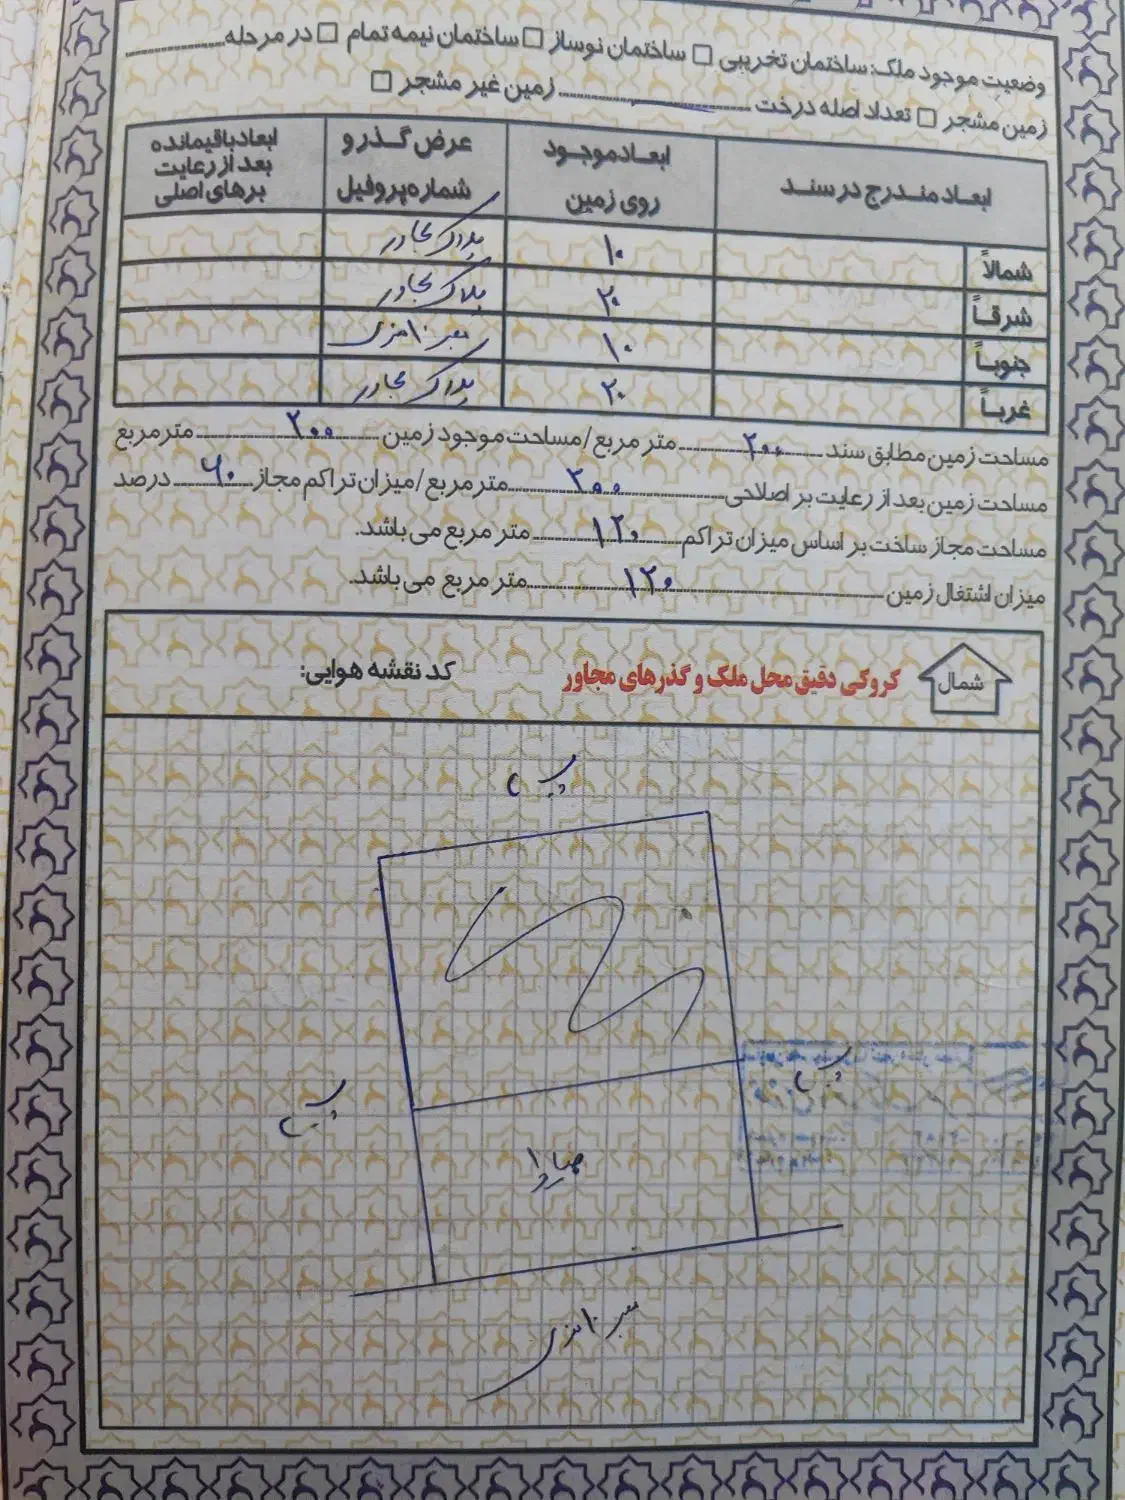 وضعیت موجود ملک: ساختمان تخریبی □ ساختمان نوساز □ ساختمان نیمه تمام □ در مرحله
زمین مشجر □ تعداد اصله درخت زمین غیر مشجر □
ابعاد مندرج در سند ابعاد موجود روی زمین عرض گذر و شماره پروفیل ابعاد باقیمانده بعد از رعایت برهای اصلی
شمالاً ۱۰ پلاک مجاور
شرقاً ۲۰ پلاک مجاور
جنوباً ۱۰ معبر ۱۰ متری
غرباً ۲۰ پلاک مجاور
مساحت زمین مطابق سند ۲۰۰ متر مربع / مساحت موجود زمین ۲۰۰ متر مربع
مساحت زمین بعد از رعایت بر اصلاحی ۲۰۰ متر مربع / میزان تراکم مجاز ۶۰ درصد
مساحت مجاز ساخت بر اساس میزان تراکم ۱۲۰ متر مربع می باشد.
میزان اشتغال زمین ۱۲۰ متر مربع می باشد.
شمال
کروکی دقیق محل ملک و گذرهای مجاور
کد نقشه هوایی:
معبر ۱۰ متری